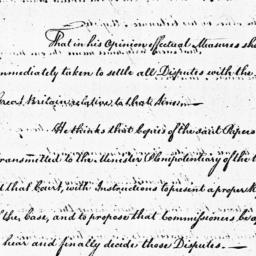 That in his Opinion effectual Measures sho
mmediately taken to settle all Disputes with the
Great Britain relative to that Line—
He thinks that Copies of the said Papers
transmitted to the Minister Plenipotentiary of the
d that Court, with Instructions to present a proper
of the Case, and to propose that Commissioners be a
hear and finally decide those Disputes.—